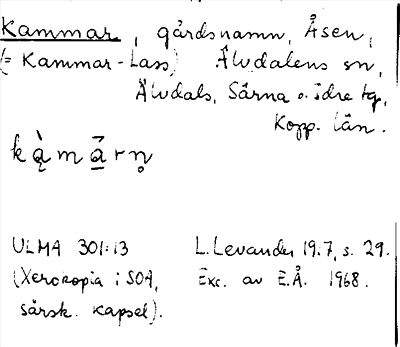 Kammar, gårdsnamn, Åsen,
(= Kammar-Lass) Älvdalens sn,
Älvdals, Särna o. Idre tg,
Kopp. län.
ULMA 301:13 L. Levander 19.7, s. 29.
(Xerokopia i SOA, Exc. av E.Å. 1968.
särsk. kapsel).